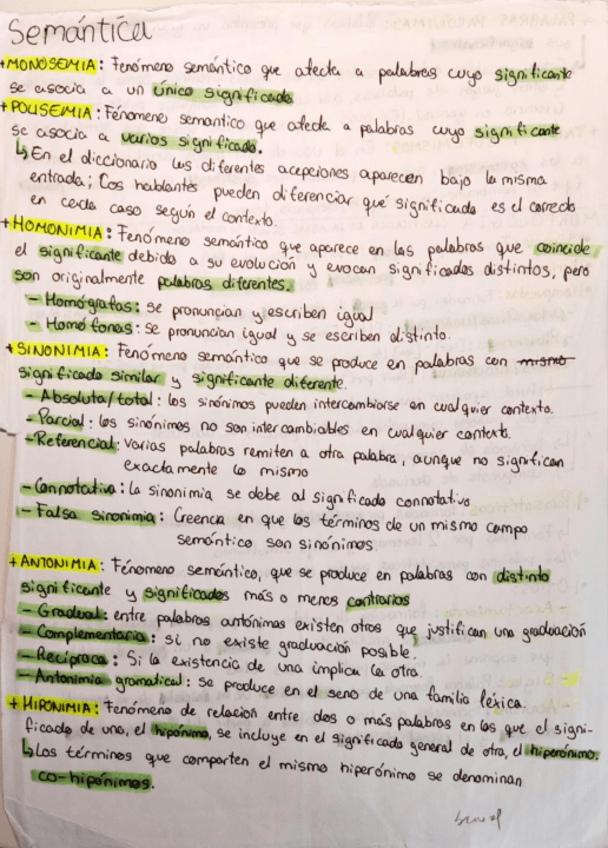 Semántica
+MONOSEMIA: Fenómeno semántico que afecta a palabras cuyo significante
se asocia a un único significado
+POLISEMIA: Fénomeno semantico que afecta a palabras cuyo significante
se asocia a varios significado.
↳En el diccionario las diferentes acepciones aparecen bajo la misma
entrada; Los hablantes pueden diferenciar qué significado es el correcto
en cada caso según el contexto.
+HOMONIMIA: Fenómeno semántico que aparece en las palabras que coincide
el significante debido a su evolución y evocan significados distintos, pero
son originalmente palabras diferentes.
- Homógrafas: se pronuncian y escriben igual
- Homófonas: se pronuncian igual y se escriben distinto.
+SINONIMIA: Fenómeno semántico que se produce en palabras con mismo
significado similar y significante diferente.
- Absoluta/total: los sinónimos pueden intercambiarse en cualquier contexto.
- Parcial: los sinónimos no son intercambiables en cualquier contexto.
- Referencial: Varias palabras remiten a otra palabra, aunque no significan
exactamente lo mismo
- Connotativa: la sinonimia se debe al significado connotativo
- Falsa sinonimia: Creencia en que los términos de un mismo campo
semántico son sinónimos.
+ANTONIMIA: Fénomeno semántico, que se produce en palabras con distinto
significante y significados más o menos contrarios
- Gradual: entre palabras antónimas existen otros que justifican una graduación
- Complementaria: si no existe graduación posible.
- Recíproca: Si la existencia de una implica la otra.
- Antonimia gramatical: se produce en el seno de una familia léxica.
+ HIPONIMIA: Fenómeno de relación entre dos o más palabras en las que el signi-
ficado de una, el hipónimo, se incluye en el significado general de otra, el hiperónimo.
↳Los términos que comparten el mismo hiperónimo se denominan
co-hipónimos.